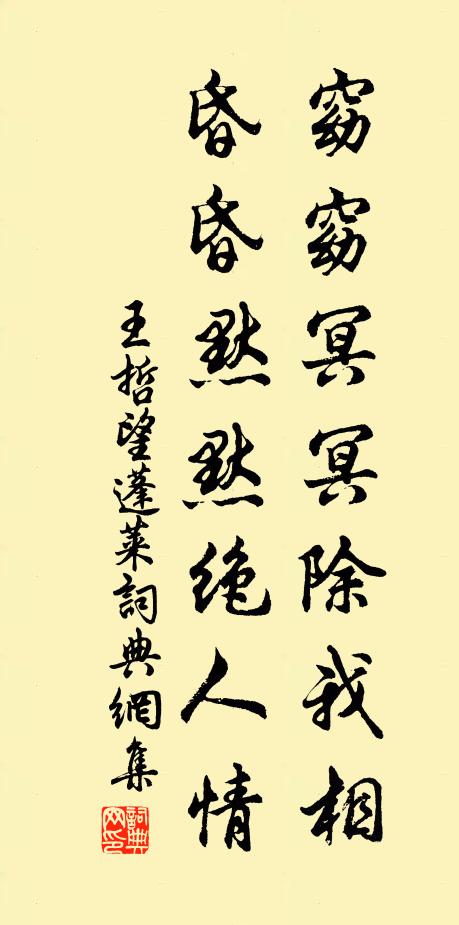 窈窈冥冥除我相
昏昏默默绝人情
王哲望蓬莱詞典網集
詞典网印